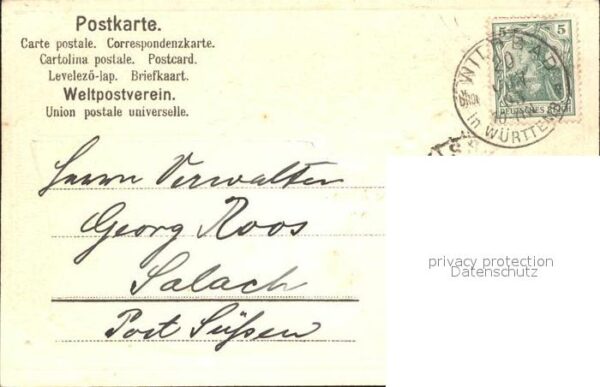 Postkarte.
Carte postale. Correspondenzkarte.
Cartolina postale. Postcard.
Levelező-lap. Briefkaart.
Weltpostverein.
Union postale universelle.
5 5
DEUTSCHES REICH
WILDBAD
in WÜRTTEMB
Herrn Verwalter
Georg Roos
Salach
Post Süßen
privacy protection
Datenschutz